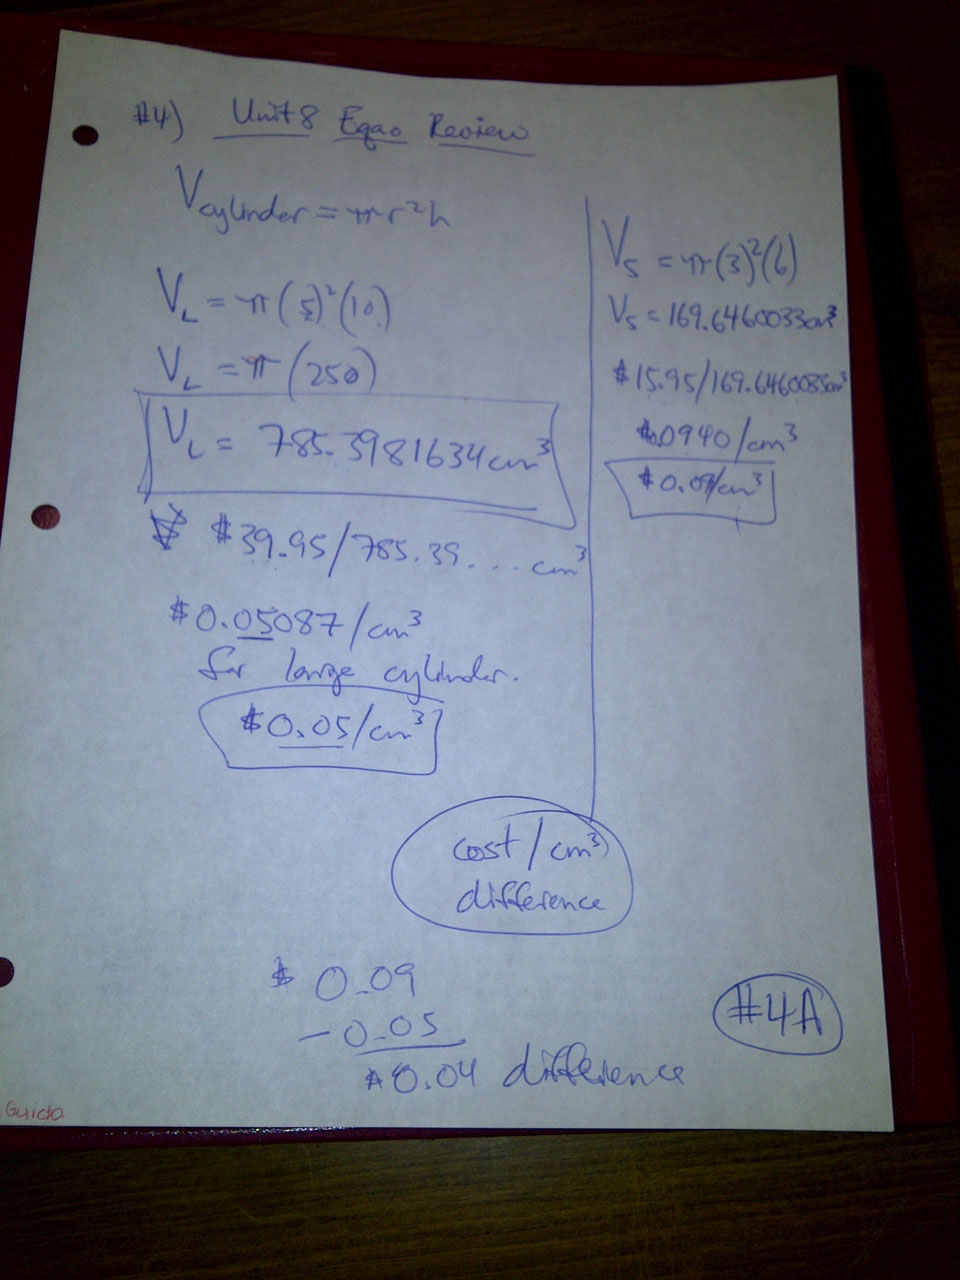 #4) Unit 8 Eqao Review
Vcylinder = πr²h
V_L = π(5)²(10)
V_L = π(250)
V_L = 785.3981634cm³
$39.95/785.39... cm³
$0.05087/cm³
for large cylinder.
$0.05/cm³
V_S = π(3)²(6)
V_S = 169.6460033cm³
$15.95/169.6460033cm³
$0.0940/cm³
$0.09/cm³
cost/cm³
difference
$ 0.09
- 0.05
$0.04 difference
#4A
Guido